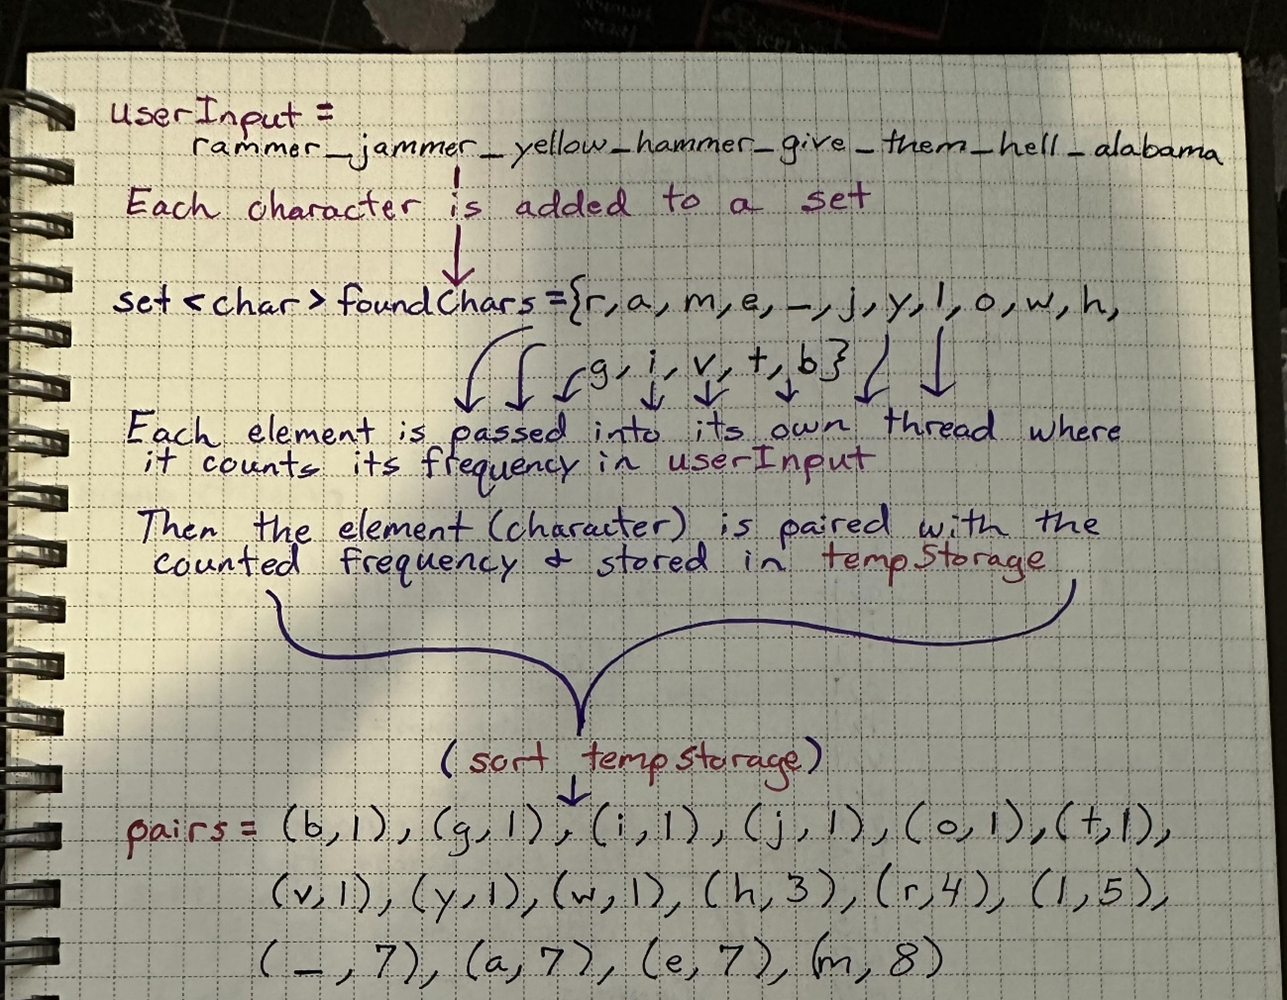 userInput =
rammer_jammer_yellow_hammer_give_them_hell_alabama
Each character is added to a set
set<char> foundChars={r, a, m, e, _, j, y, l, o, w, h,
g, i, v, t, b}
Each element is passed into its own thread where
it counts its frequency in userInput
Then the element (character) is paired with the
counted frequency & stored in tempStorage
(sort tempStorage)
pairs = (b,1), (g,1), (i,1), (j,1), (o,1), (t,1),
(v,1), (y,1), (w,1), (h,3), (r,4), (l,5),
(_,7), (a,7), (e,7), (m,8)